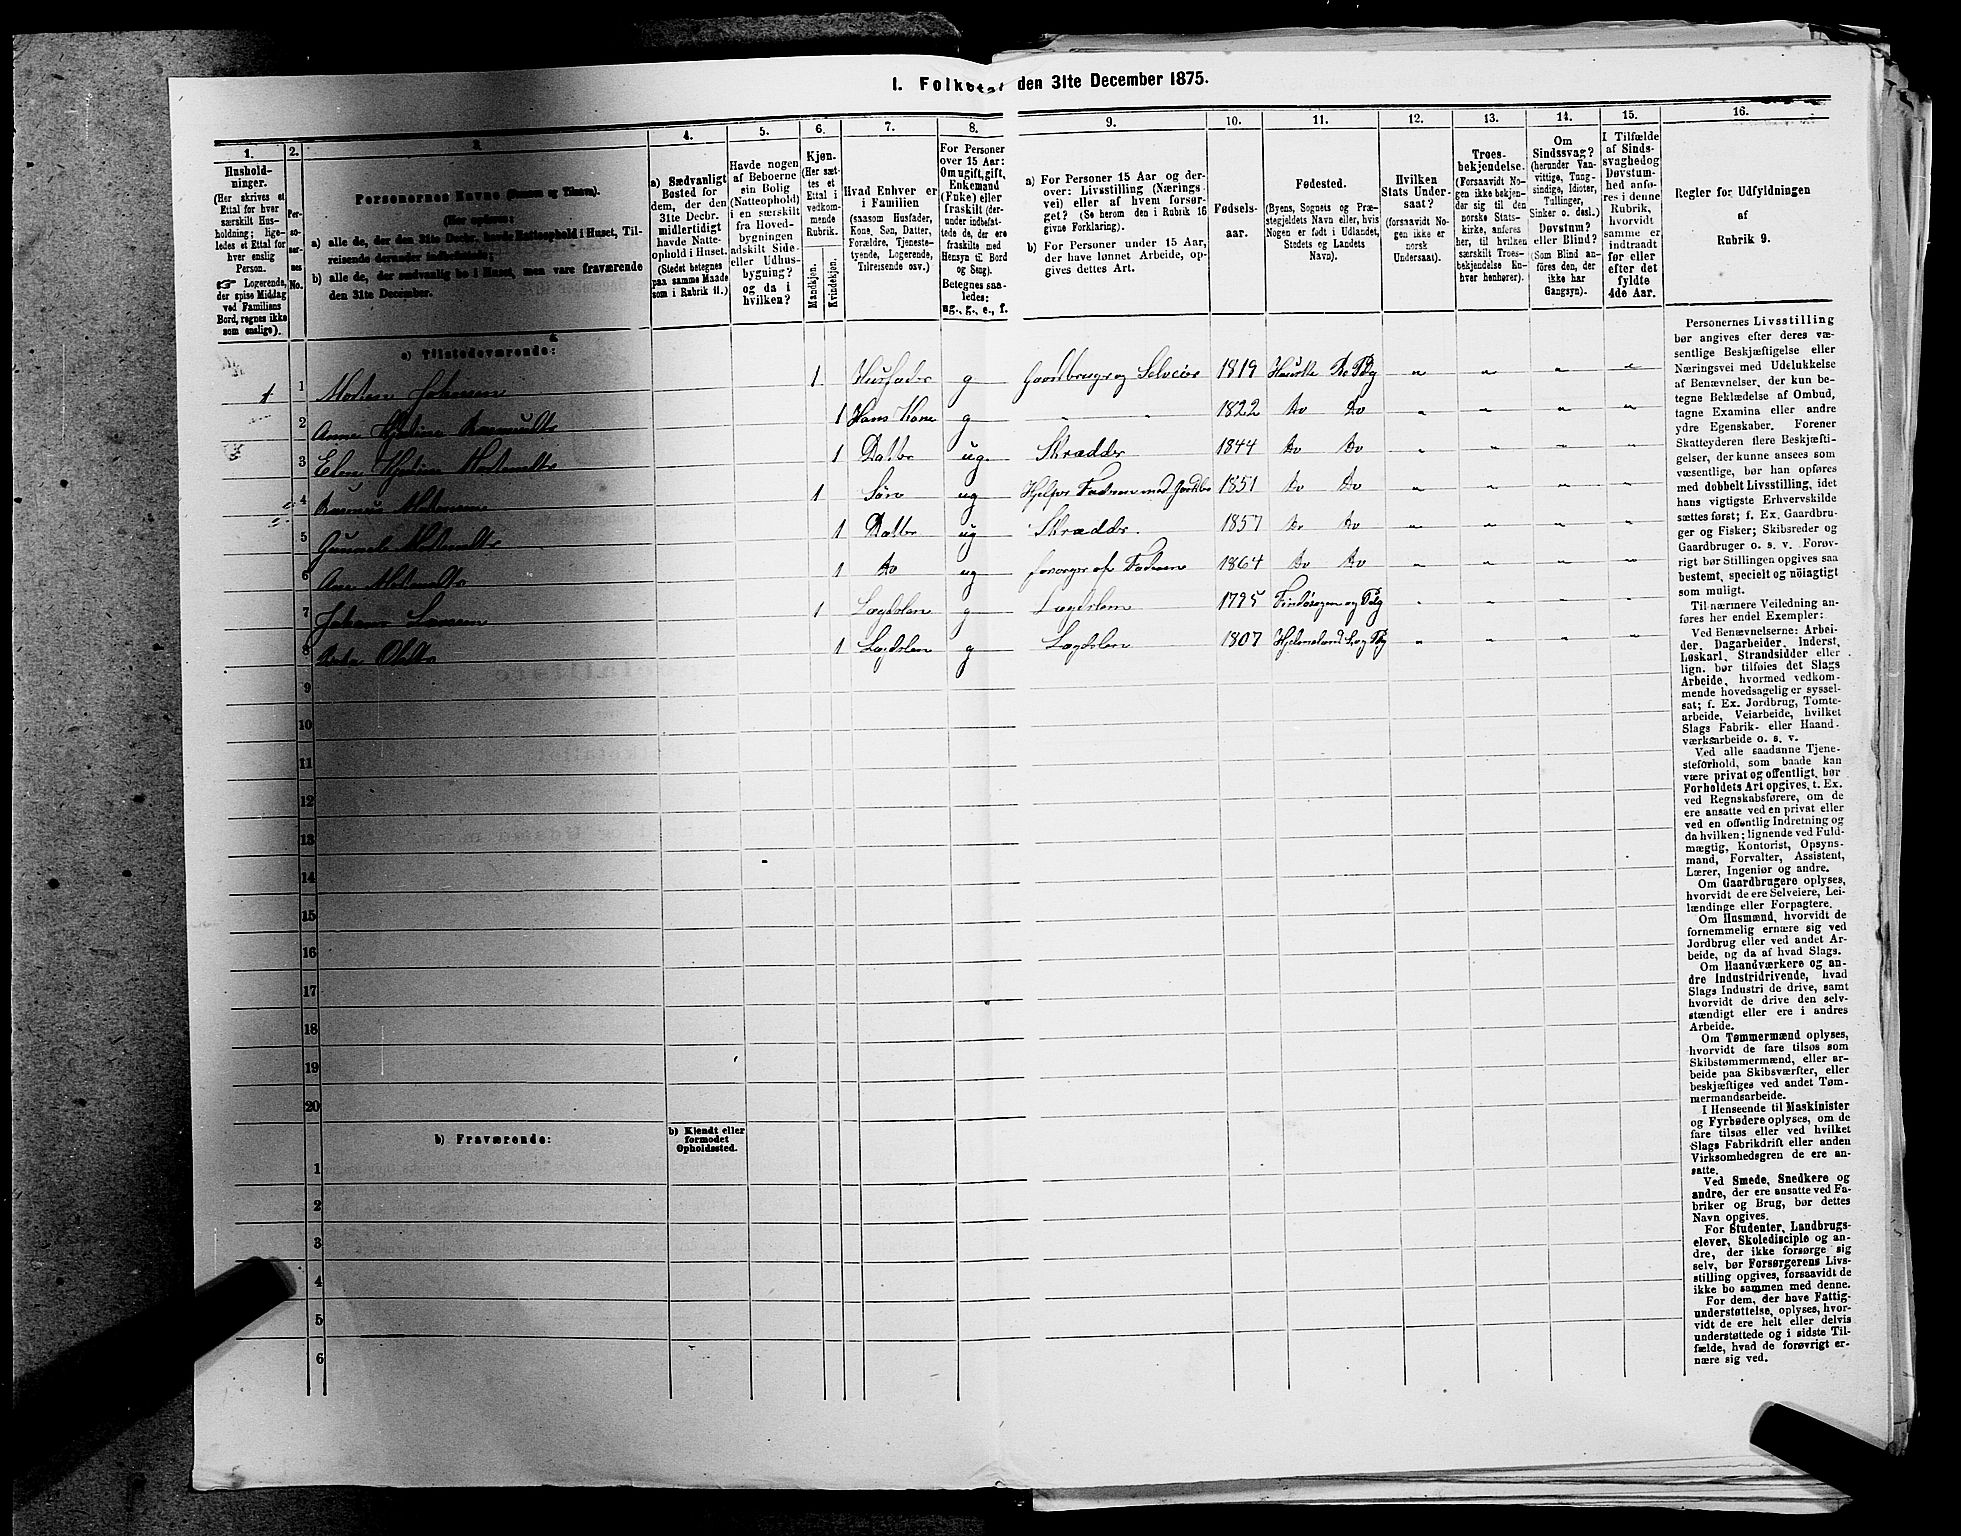 I. Folketal den 31te December 1875.
1. 2. 3. 4. 5. 6. 7. 8. 9. 10. 11. 12. 13. 14. 15. 16.
Hushold-
ninger.
(Her skrives et
Ettal for hver
særskilt Hus-
holdning; lige-
ledes et Ettal for
hver enslig
Person.
☞ Logerende,
der spise Middag
ved Familiens
Bord, regnes ikke
som enslige).
Per-
so-
ner-
nes
No.
Personernes Navne (Fornavn og Tilnavn).
(Her opføres:
a) alle de, der den 31te Decbr. havde Natteophold i Huset, Til-
reisende derunder indbefattede;
b) alle de, der sædvanlig bo i Huset, men vare fraværende
den 31te December.
a) Sædvanligt
Bosted for
dem, der den
31te Decbr.
midlertidigt
havde Natte-
ophold i Huset.
(Stedet betegnes
paa samme Maade
som i Rubrik 11.)
Havde nogen
af Beboerne
sin Bolig
(Natteophold)
i en særskilt
fra Hoved-
bygningen
adskilt Side-
eller Udhus-
bygning?
og da i
hvilken?
Kjøn.
(Her sæt-
tes et
Ettal i
vedkom-
mende
Rubrik.
Mandkjøn.
Kvindekjøn.
Hvad Enhver er
i Familien
(saasom Husfader,
Kone, Søn, Datter,
Forældre, Tjeneste-
tyende, Logerende,
Tilreisende osv.)
For Personer
over 15 Aar:
Om ugift, gift,
Enkemand
(Enke) eller
fraskilt (der-
under indbefat-
tede de, der ere
fraskilte med
Hensyn til Bord
og Seng).
Betegnes saa-
ledes:
ug., g., e., f.
a) For Personer 15 Aar og der-
over: Livsstilling (Nærings-
vei) eller af hvem forsør-
get? (Se herom den i Rubrik 16
givne Forklaring).
b) For Personer under 15 Aar,
der have lønnet Arbeide, op-
gives dettes Art.
Fødsels-
aar.
Fødested.
(Byens, Sognets og Præ-
stegjeldets Navn eller, hvis
Nogen er født i Udlandet,
Stedets og Landets
Navn).
Hvilken
Stats Under-
saat?
(forsaavidt No-
gen ikke er
norsk
Undersaat).
Troes-
bekjendelse.
(Forsaavidt No-
gen ikke bekjen-
der sig til den
norske Stats-
kirke, anføres
her, til hvilken
særskilt Troes-
bekjendelse En-
hver henhører).
Om
Sindssvag?
(herunder Van-
vittige, Tung-
sindige, Idioter,
Tullinger,
Sinker o. desl.)
Døvstum?
eller Blind?
(Som Blind an-
føres den, der
ikke har
Gangsyn).
I Tilfælde
af Sinds-
svaghed og
Døvstum-
hed anfø-
res i denne
Rubrik,
hvorvidt
samme er
indtraadt
før eller
efter det
fyldte
4de Aar.
Regler for Udfyldningen
af
Rubrik 9.
a) Tilstedeværende:
1 1 Morten Johnsen 1 Husfader g Gaardbruger og Selveier 1819 Do
2 Anne 1 Hans Kone g " " 1822 Do Do
3 Elen 1 Datter ug Skrædder 1844 Do Do
4 Rasmus Mortensen 1 Søn ug Hjelper Faderen med 1851 Do Do
5 1 Datter ug Skrædder 1857 Do Do
6 Ane 1 Do ug forsørges af Faderen 1864 Do Do
7 1 Lægdslem g Lægdslem 1795
8 1 Lægdslem g Lægdslem 1807 Hjelmeland
9
10
11
12
13
14
15
16
17
18
19
20
b) Fraværende:
b) Kjendt eller
formodet
Opholdssted.
1
2
3
4
5
6
Personernes Livsstilling
bør angives efter deres væ-
sentlige Beskjæftigelse eller
Næringsvei med Udelukkelse
af Benævnelser, der kun be-
tegne Beklædelse af Ombud,
tagne Examina eller andre
ydre Egenskaber. Forener
Skatteyderen flere Beskjæfti-
gelser, der kunne ansees som
væsentlige, bør han opføres
med dobbelt Livsstilling, idet
hans vigtigste Erhvervskilde
sættes først; f. Ex. Gaardbru-
ger og Fisker; Skibsreder og
Gaardbruger o. s. v. Forøv-
rigt bør Stillingen opgives saa
bestemt, specielt og nöiagtigt
som muligt.
Til nærmere Veiledning an-
føres her endel Exempler:
Ved Benævnelserne: Arbei-
der, Dagarbeider, Inderst,
Løskarl, Strandsidder eller
lign. bør tilføies det Slags
Arbeide, hvormed vedkom-
mende hovedsagelig er syssel-
sat; f. Ex. Jordbrug, Tomte-
arbeide, Veiarbeide, hvilket
Slags Fabrik- eller Haand-
værksarbeide o. s. v.
Ved alle saadanne Tjene-
steforhold, som baade kan
være privat og offentligt, bør
Forholdets Art opgives, t. Ex.
ved Regnskabsførere, om de
ere ansatte ved en privat eller
ved en offentlig Indretning og
da hvilken; lignende ved Fuld-
mægtig, Kontorist, Opsyns-
mand, Forvalter, Assistent,
Lærer, Ingeniør og andre.
Om Gaardbrugere oplyses,
hvorvidt de ere Selveiere, Lei-
lændinge eller Forpagtere.
Om Husmænd, hvorvidt de
fornemmelig ernære sig ved
Jordbrug eller ved andet Ar-
beide, og da af hvad Slags.
Om Haandværkere og an-
dre Industridrivende, hvad
Slags Industri de drive, samt
hvorvidt de drive den selv-
stændigt eller ere i andres
Arbeide.
Om Tømmermænd oplyses,
hvorvidt de fare tilsøs som
Skibstømmermænd, eller ar-
beide paa Skibsværfter, eller
beskjæftiges ved andet Tøm-
mermandsarbeide.
I Henseende til Maskinister
og Fyrbødere oplyses, om de
fare tilsøs eller ved hvilket
Slags Fabrikdrift eller anden
Virksomhedsgren de ere an-
satte.
Ved Smede, Snedkere og
andre, der ere ansatte ved Fa-
briker og Brug, bør dettes
Navn opgives.
For Studenter, Landbrugs-
elever, Skoledisciple og an-
dre, der ikke forsørge sig
selv, bør Forsørgerens Livs-
stilling opgives, forsaavidt de
ikke bo sammen med denne.
For dem, der have Fattig-
understøttelse, oplyses, hvor-
vidt de ere helt eller delvis
understøttede og i sidste Til-
fælde, hvad de forøvrigt er-
nære sig ved.